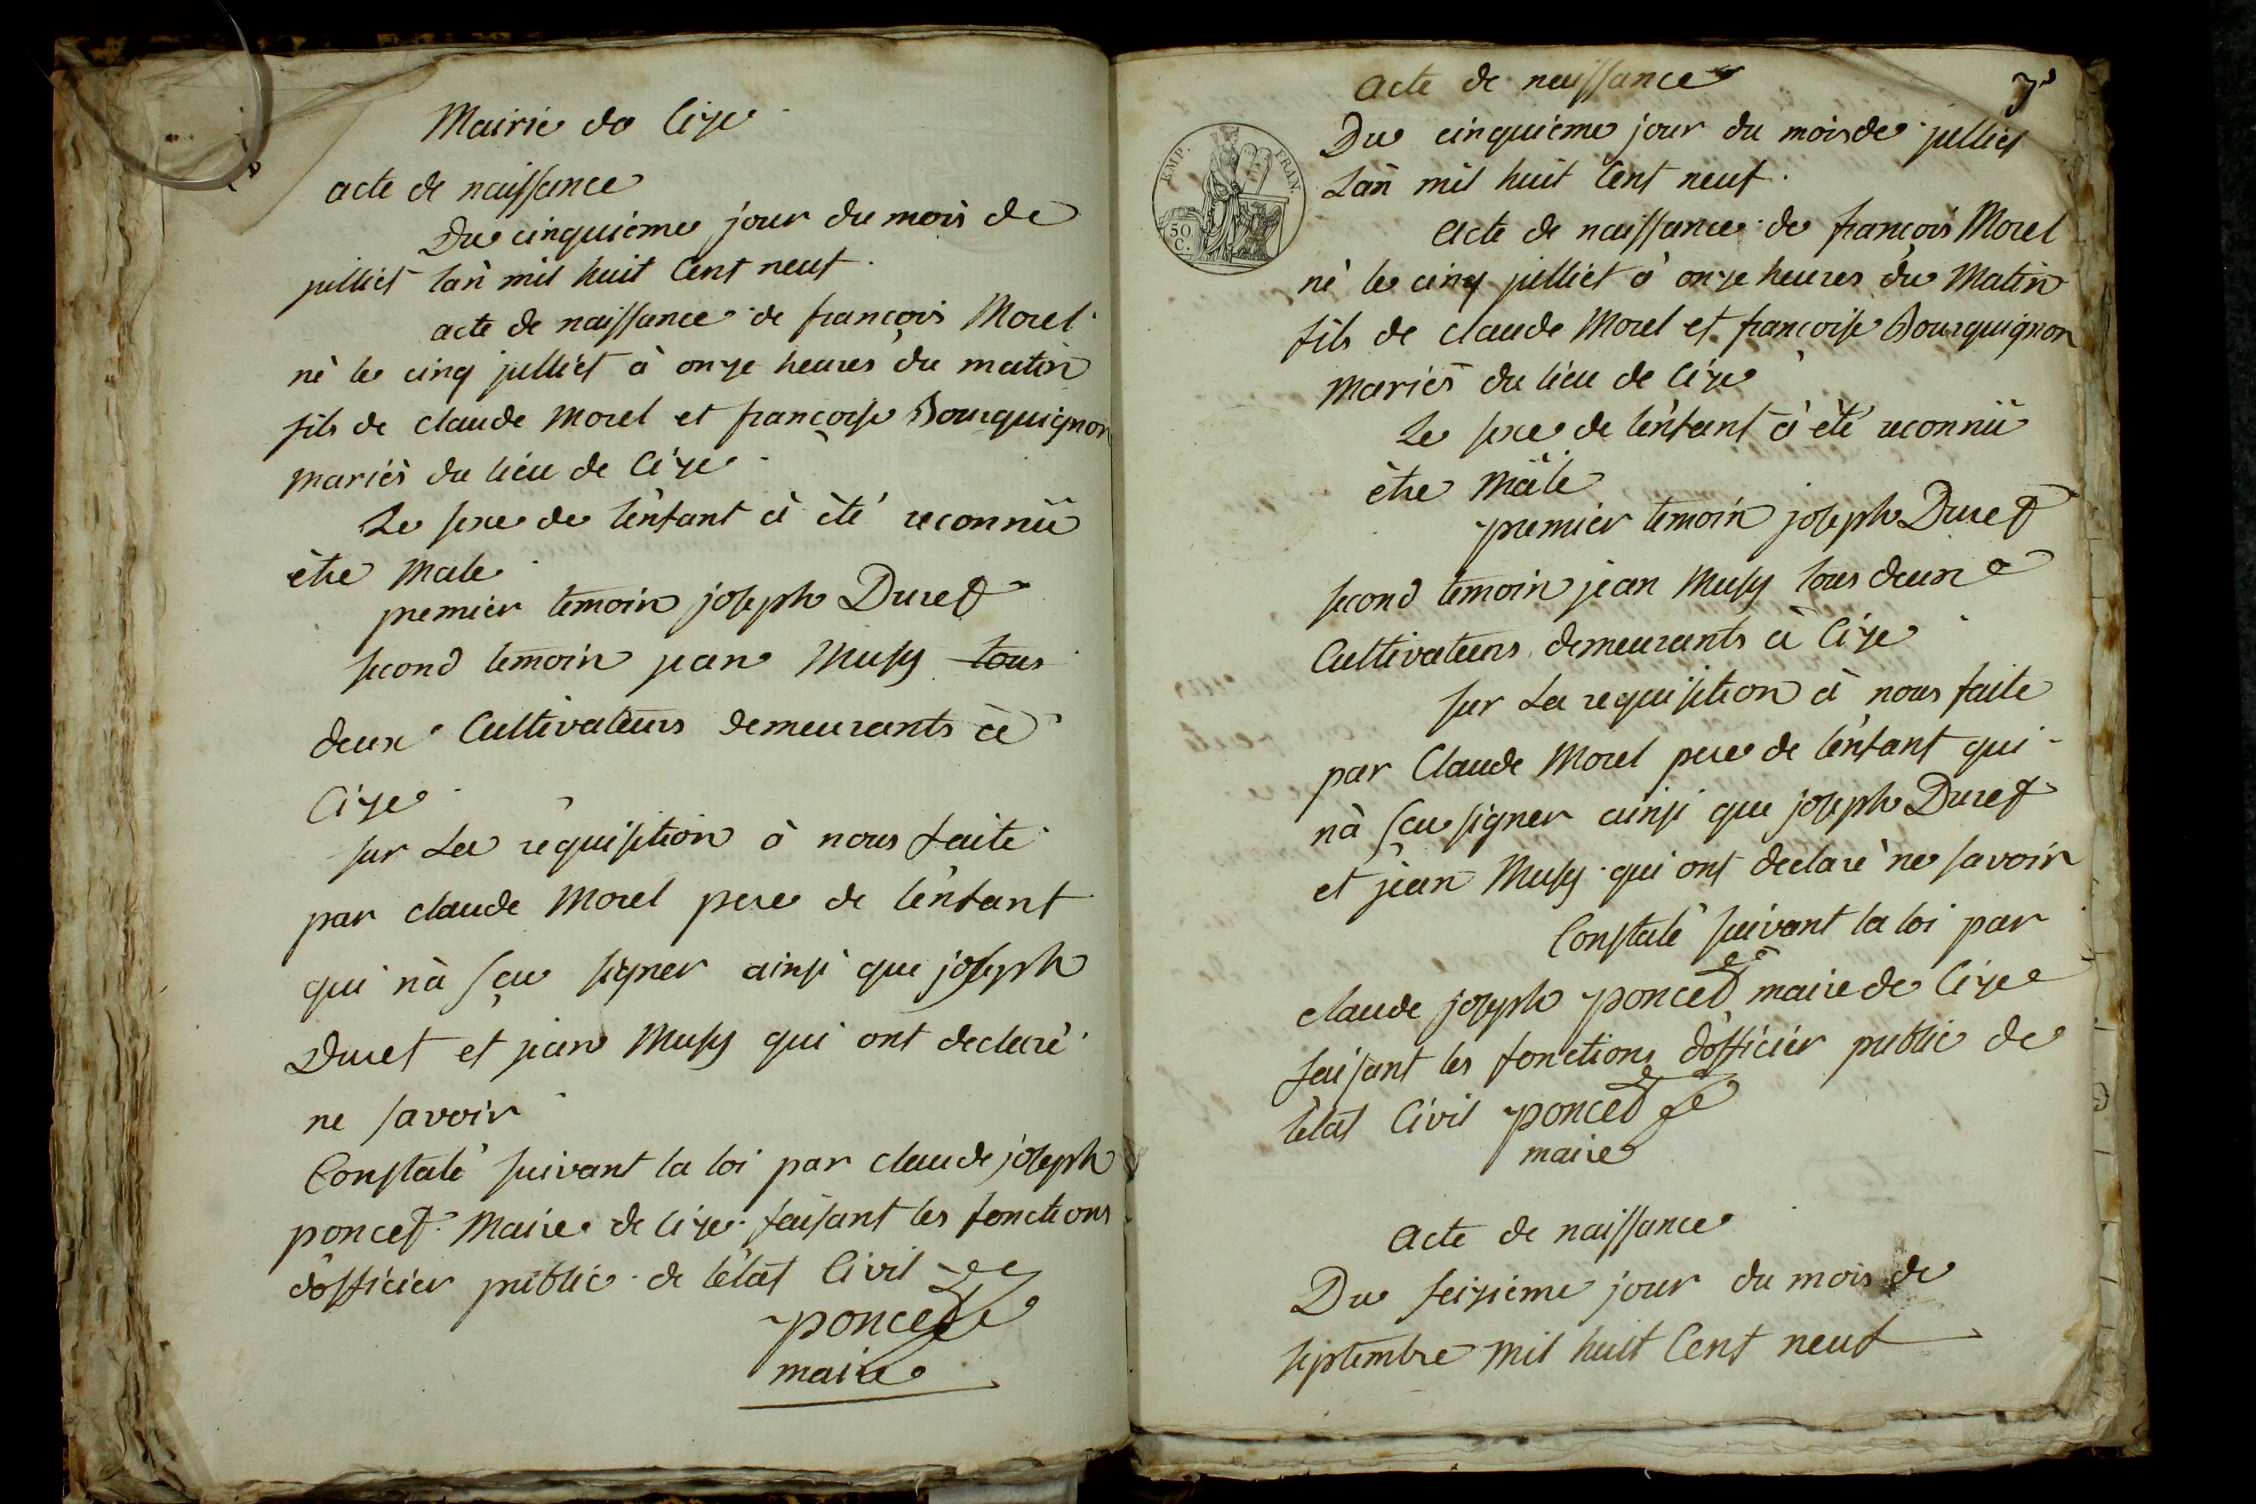 Mairie de Cize
acte de naissance
Du cinquieme jour du mois de
julliet l'an mil huit Cent neuf.
acte de naissance de francois Morel
né le cinq julliet à onze heures du matin
fils de claude Morel et francoise Bourguignon
mariés du lieu de Cize
Le sexe de l'enfant à été reconnü
être Male
premier temoin joseph Duret
second temoin jean Musy tous
deux Cultivateurs demeurants à
Cize
sur La requisition à nous faite
par claude Morel pere de l'enfant
qui n'à sçu signer ainsi que joseph
Duret et jean Musy qui ont declaré
ne savoir
Constaté suivant la loi par claude joseph
poncet Maire de Cize faisant les fonctions
d'officier public de l'état Civil
poncet
maire
3
acte de naissance
Du cinquieme jour du mois de julliet
L'an mil huit Cent neuf.
EMP. FRAN.
50 C.
acte de naissance de francois Morel
né le cinq julliet à onze heures du Matin
fils de claude Morel et francoise Bourguignon
mariés du lieu de Cize
Le sexe de l'enfant à été reconnü
être Mâle
premier temoin joseph Duret
second temoin jean Musy tous deux
Cultivateurs demeurants à Cize
sur La requisition à nous faite
par Claude Morel pere de l'enfant qui
n'à sçu signer ainsi que joseph Duret
et jean Musy qui ont declaré ne savoir
Constaté suivant la loi par
claude joseph poncet maire de Cize
faisant les fonctions d'officier public de
l'état Civil poncet
maire
Acte de naissance
Du seizieme jour du mois de
septembre mil huit Cent neuf